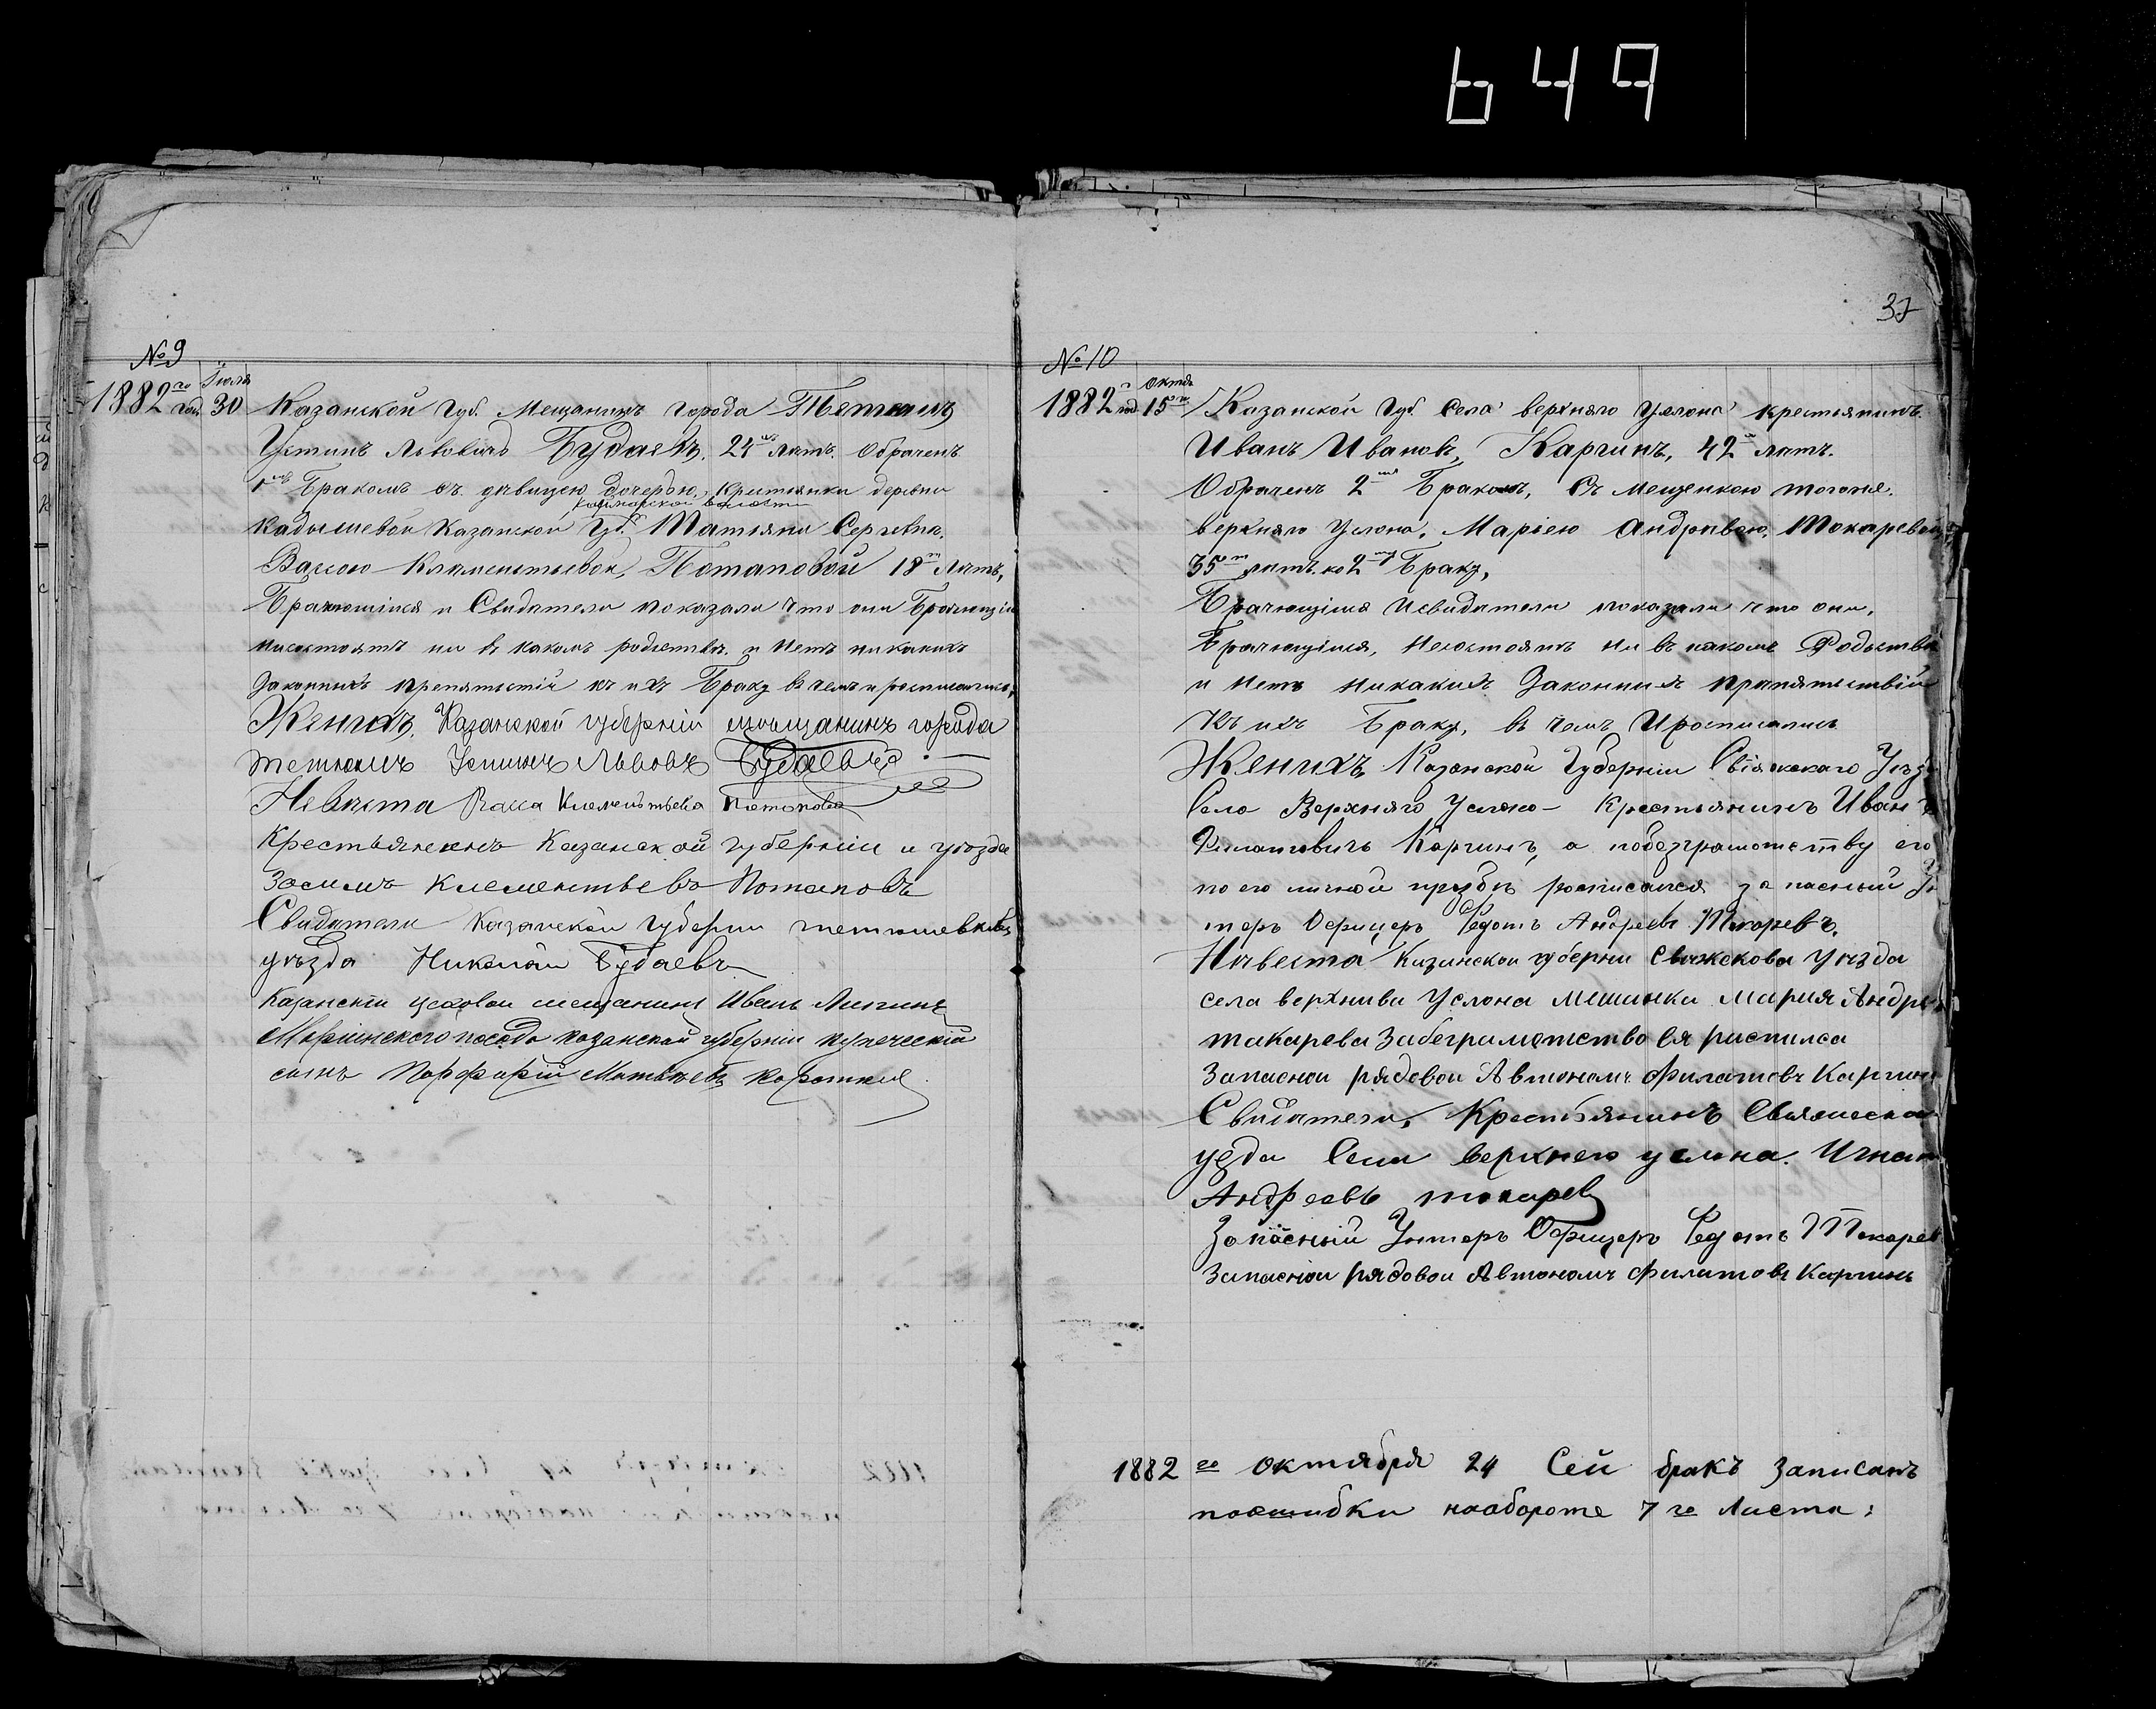 649
37
№ 9
1882го года Іюля 30 Казанской Губ. Мещанинъ города Тетюшъ
Устинъ Львовичъ Будаевъ, 24хъ лятъ. Обраченъ
1мъ Бракомъ съ дѣвицею дочерью, Крестьянки деревни
Кадышевой Казанской Губ. Татьяны Сергевны,
Вассою Клементьевой, Потаповой 18т лятъ,
Брачющіися и Свидатели показали что они Брачющіи
нисостоятъ ни въ какомъ родствѣ. и нетъ никакихъ
Законныхъ препятьстій къ ихъ Браку в чемъ и росписались,
Женихъ, Казанской губерніи мѣщанинъ города
тетюшъ Устинъ Львовъ Будаевъ.
Невѣста Васса Клементьева Потапова
Крестьянинъ Казанской губерніи и уѣзда
Зосимъ Клементьевъ Потаповъ
Свидатели Казанской губерни тетюшевскова
уѣзда Николай Будаевъ
Казански цеховои мещанинъ Иванъ Липинъ
Маріинского посада казанской губерніи купеческій
сынъ Порфирій Матвѣевъ
№ 10
1882 год Октя 15го Казанской Губ Села верхняго Услона крестьянинъ.
Иванъ Ивановъ, Каргинъ, 42 лятъ.
Обраченъ 2мъ Бракомъ, Съ мещенкою тогоже.
верхняго Услона, Маріею Андрѣвою, Токаревой
35т лятъ. ко 2му Браку,
Брачющіися исвидатели показали что они,
Брачющіися, несостоятъ ни въ какомъ Родьстви
и нетъ никакихъ Законныхъ прапятьствій
къ ихъ Браку, въ чемъ Иросписались
Женихъ Казанской Губерніи Свіяжскаго Уѣзд
Села Верхняго Услона Крестьянинъ Иванъ
Филатовичъ Каргинъ, а побезграмотству его
по его личной прозбѣ росписался запасный Ун
теръ Офицеръ Федотъ Андреевъ Токаревъ.
Нивеста Казинскои губерни Свяжскова Уизда
села верхнива Услона Мешинка Мария Андре
такарева Забеграмотство ея распилса
Запаснои рядовои Автономъ Филатовъ Каргин
Свидатели, Крестьянинъ Свіяжска
уезда Села верхнего услона. Игнат
Андреевъ токарев
Запасный Унтеръ Офицеръ Федотъ Токарев
Запаснои рядовои Автономъ Филатовъ Каргинъ
1882 го Октября 24 Сей бракъ записанъ
поошибки наобороте 7 го Листа: